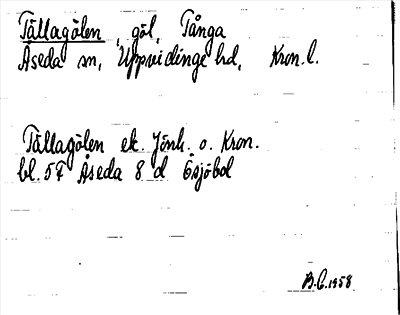 Tällagölen, göl, Tånga
Åseda sn, Uppvidinge hd, Kron. l.
Tällagölen ek. Jönk. o. Kron.
bl. 57 Åseda 8 d Ösjöbol
B.C. 1958